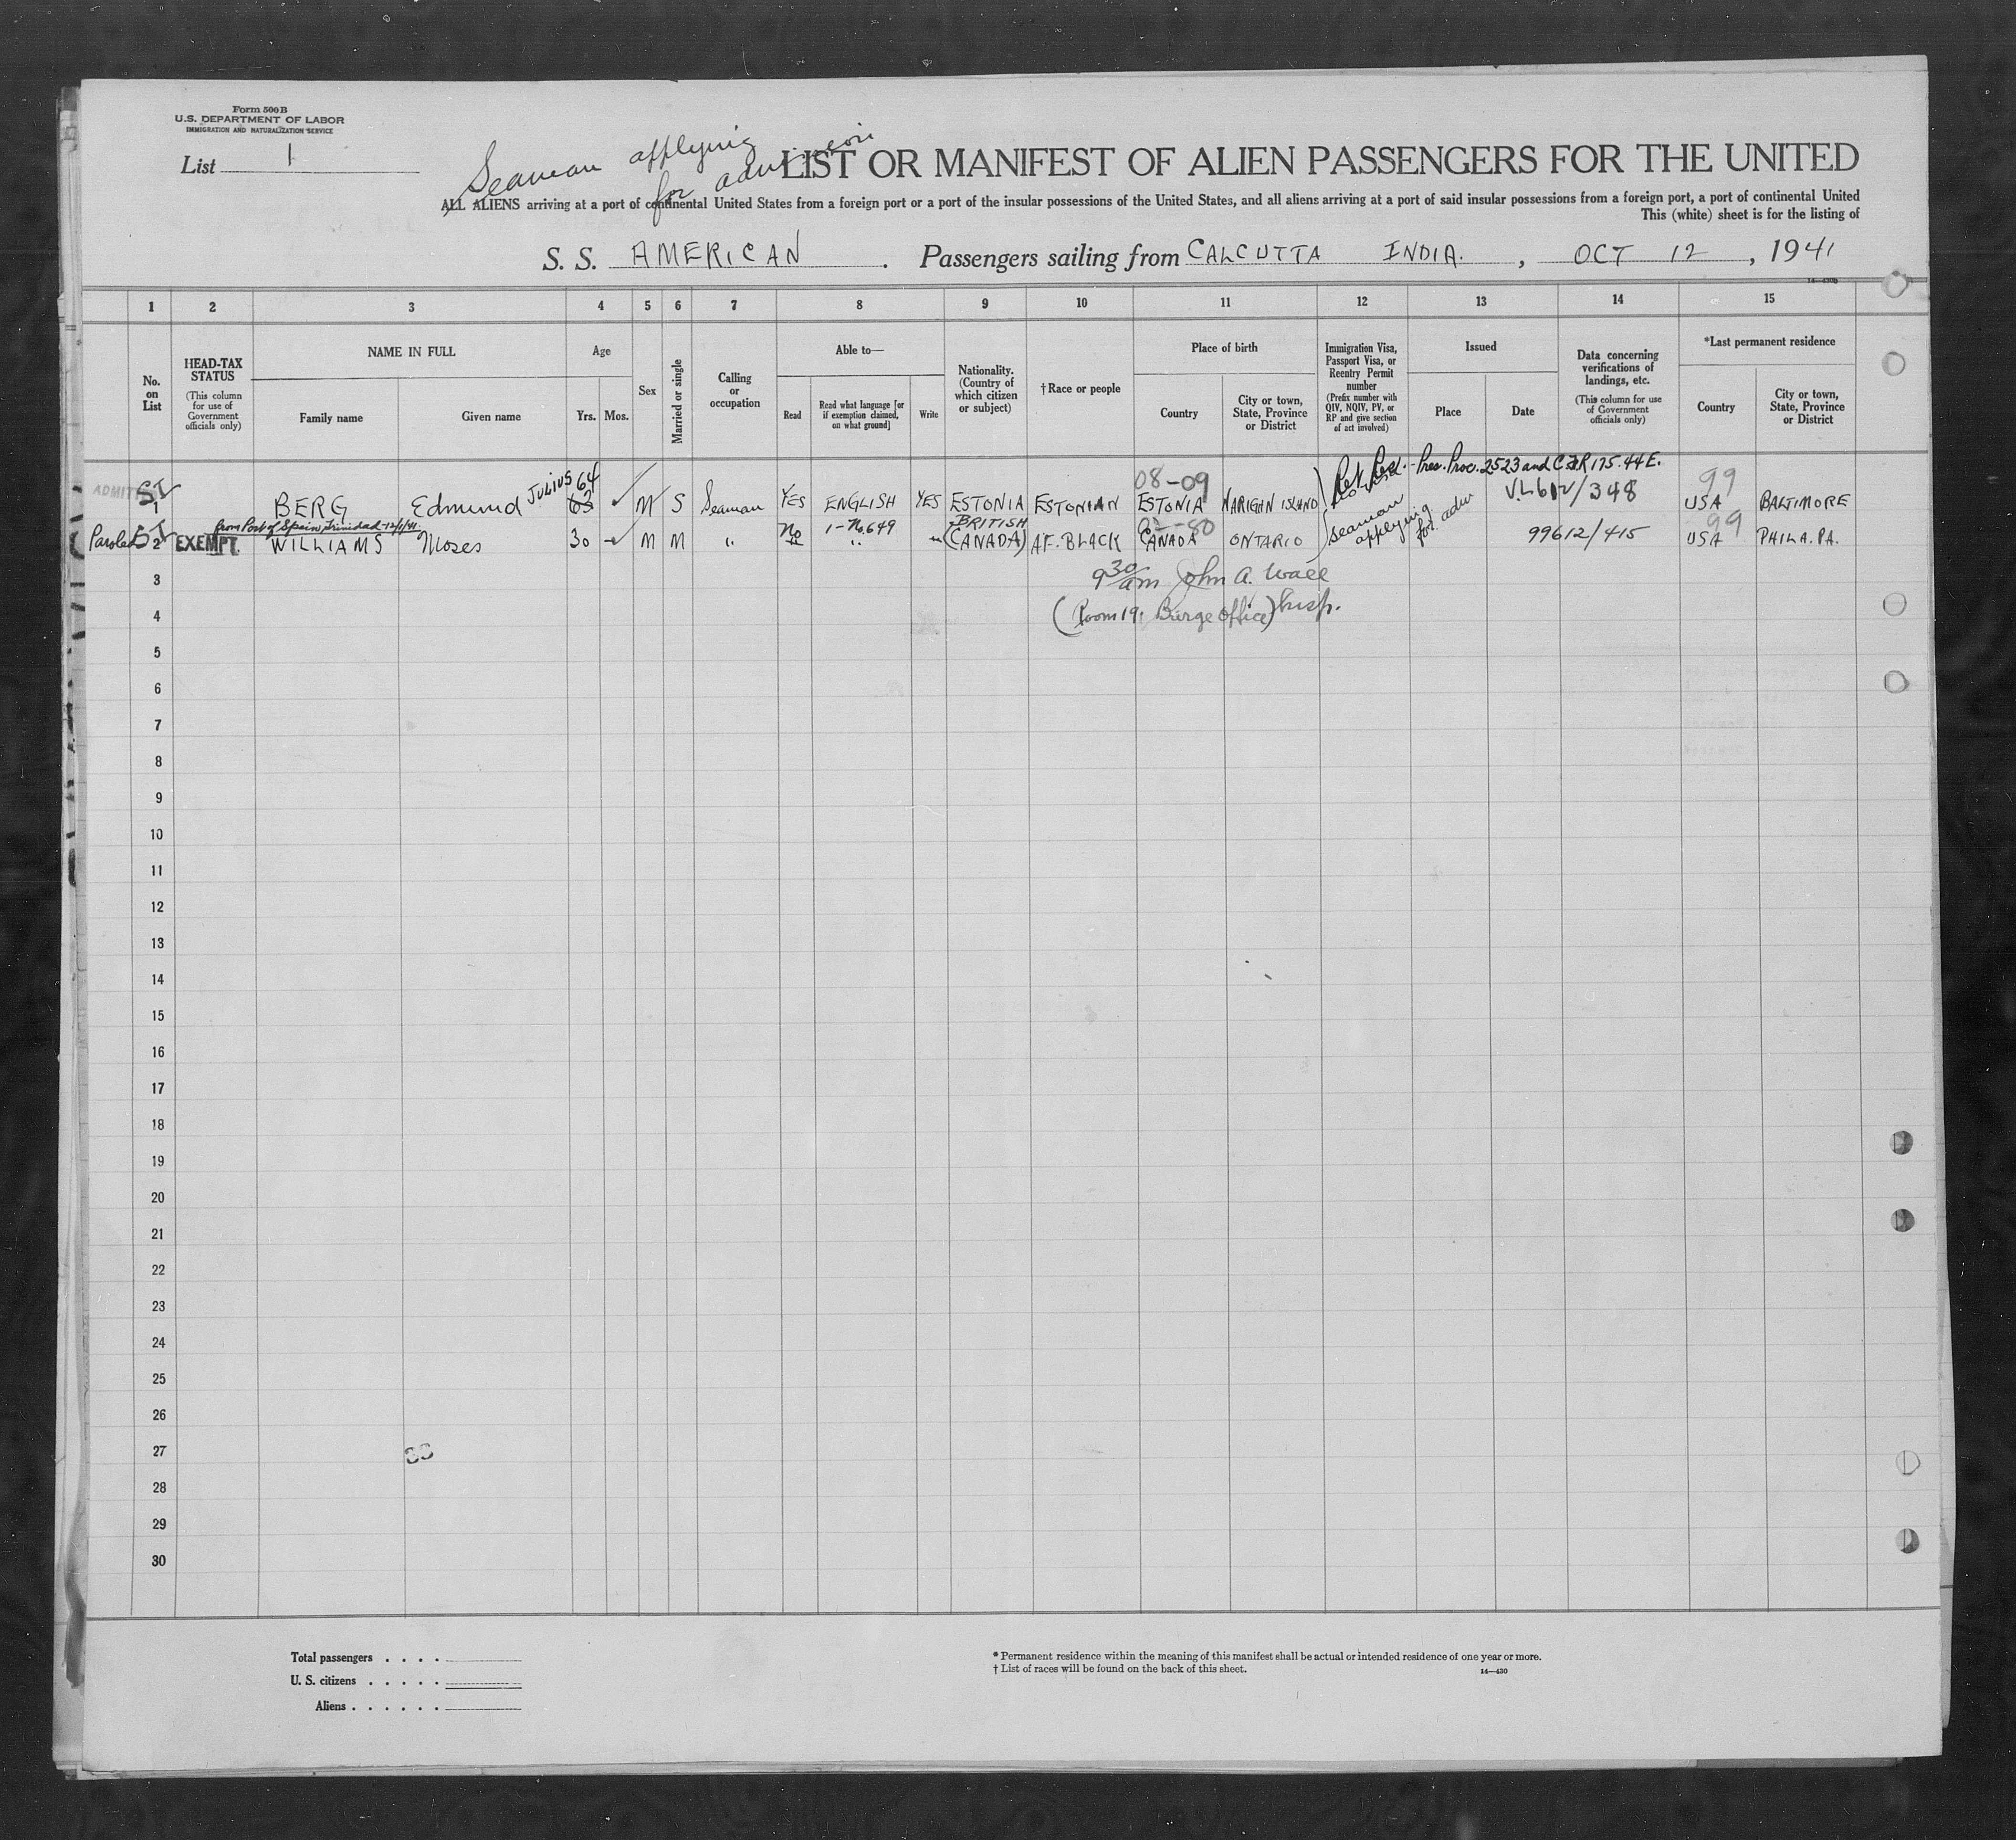 Form 500 B
U.S. DEPARTMENT OF LABOR
IMMIGRATION AND NATURALIZATION SERVICE
List 1
Seaman applying
for admission
LIST OR MANIFEST OF ALIEN PASSENGERS FOR THE UNITED
ALL ALIENS arriving at a port of continental United States from a foreign port or a port of the insular possessions of the United States, and all aliens arriving at a port of said insular possessions from a foreign port, a port of continental United
This (white) sheet is for the listing of
S. S. AMERICAN. Passengers sailing from CALCUTTA INDIA., OCT 12, 1941
1 2 3 4 5 6 7 8 9 10 11 12 13 14 15
No. on List
HEAD-TAX STATUS
(This column for use of Government officials only)
NAME IN FULL
Family name
Given name
Age
Yrs.
Mos.
Sex
Married or single
Calling or occupation
Able to—
Read
Read what language [or if exemption claimed, on what ground]
Write
Nationality. (Country of which citizen or subject)
†Race or people
Place of birth
Country
City or town, State, Province or District
Immigration Visa, Passport Visa, or Reentry Permit number
(Prefix number with QIV, NQIV, PV, or RP and give section of act involved)
Issued
Place
Date
Data concerning verifications of landings, etc.
(This column for use of Government officials only)
*Last permanent residence
Country
City or town, State, Province or District
Ret. Res. - Pres. Proc. 2523 and CFR 175.44 E.
ADMITTED SI 1 BERG Edmund JULIUS 64 63 M S Seaman YES ENGLISH YES ESTONIA ESTONIAN 08-09 ESTONIA NARIGIN ISLAND VL612/348 99 USA BALTIMORE
from Port of Spain Trinidad - 12/1/41.
Paroled SI 2 EXEMPT. WILLIAMS Moses 30 M M " No 1-No 649 " " BRITISH (CANADA) AF. BLACK 02-80 CANADA ONTARIO seaman applying for adm 99612/415 99 USA PHILA. PA.
3 9 30/am John A. Wall
4 (Room 19. Barge Office) Insp.
5
6
7
8
9
10
11
12
13
14
15
16
17
18
19
20
21
22
23
24
25
26
27
28
29
30
Total passengers . . . .
U. S. citizens . . . . .
Aliens . . . . . .
* Permanent residence within the meaning of this manifest shall be actual or intended residence of one year or more.
† List of races will be found on the back of this sheet.
14—430